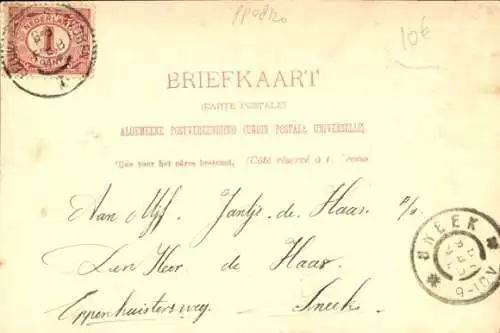 ppo8120
10€
NEDERLAND
1
CENT
BRIEFKAART
(CARTE POSTALE)
ALGEMEENE POSTVEREENIGING (UNION POSTALE UNIVERSELLE)
Zijde voor het adres bestemd. (Côté réservé à l'adresse
Aan Mejf. Jantje de Haas. p/a
Den Heer de Haas
Eppenhuistersweg. Sneek.
SNEEK
9-10V